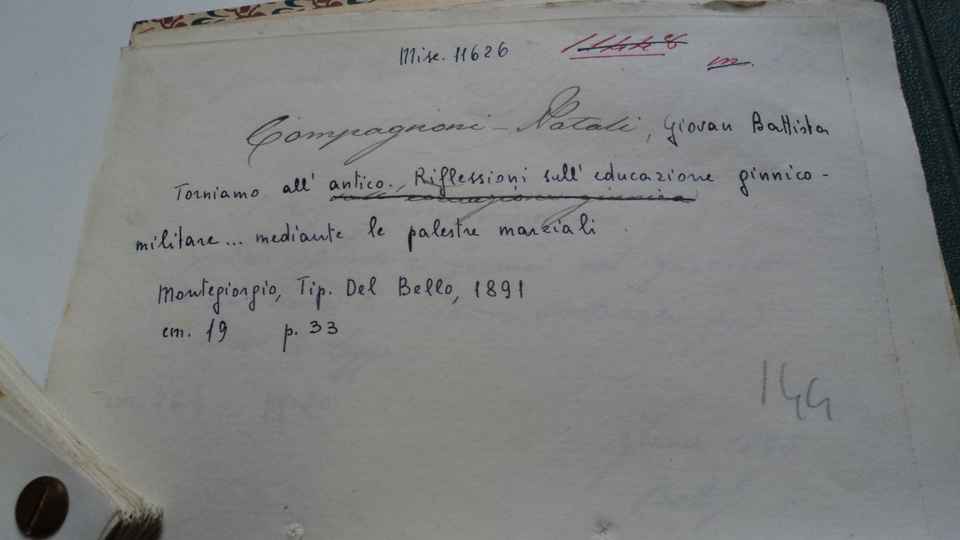 Misc. 11626
m.
Compagnoni - Natali, Giovan Battista
Torniamo all' antico. Riflessioni sull' educazione ginnico-
militare... mediante le palestre marziali.
Montegiorgio, Tip. Del Bello, 1891
cm. 19 p. 33
144